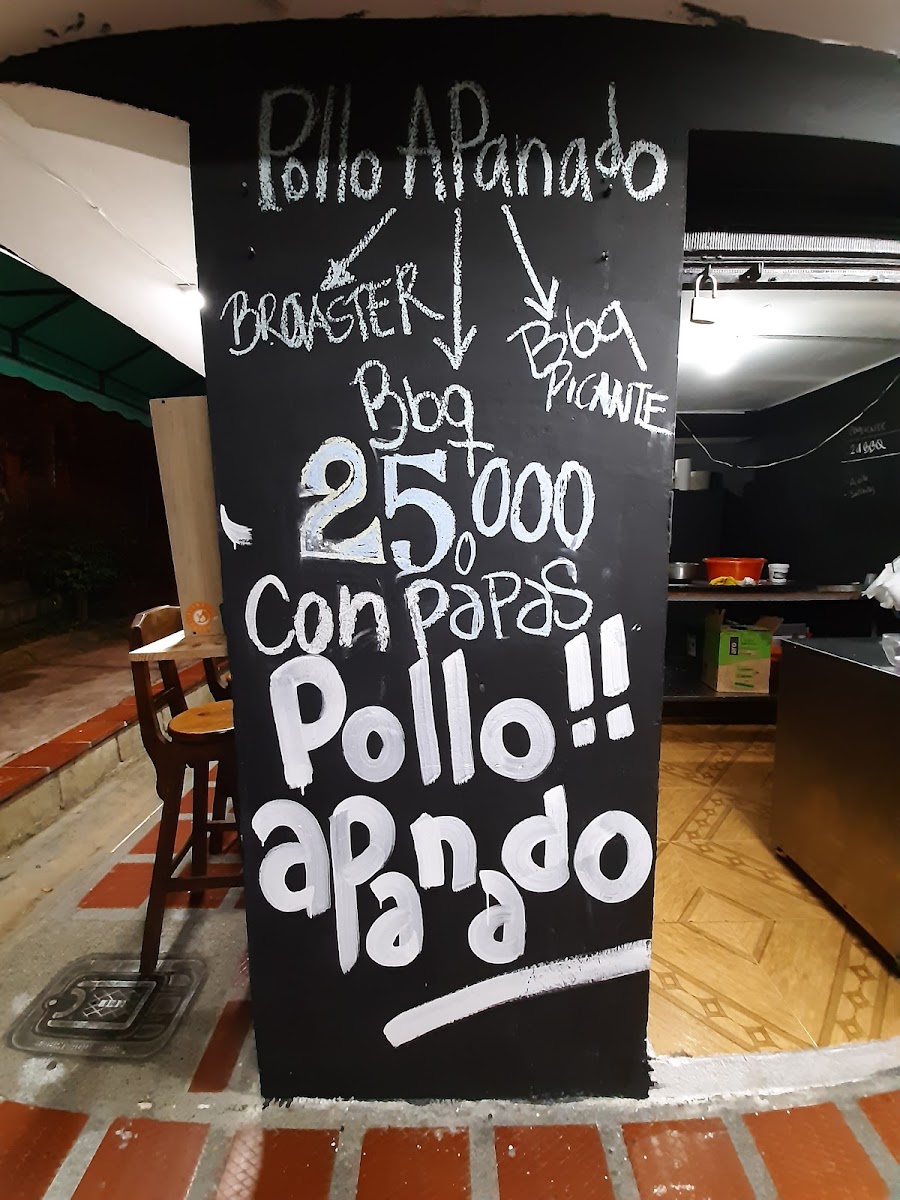 Pollo APanado
BROASTER
Bbq
Bbq
PICANTE
25.000
Con papas
Pollo!!
apanado